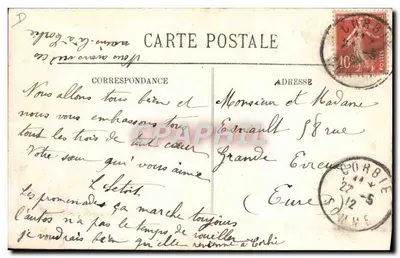 D
Nous avons vu ca
à Corbie
CARTE POSTALE
CORBIE
10
CORRESPONDANCE
ADRESSE
Nous allons tous bien et
nous vous embrassons tous
tout les trois de tout cœur
Votre sœur qui vous aime
Les promenades ça marche toujours
l'autos n'a pas le temps de rouiller
je voudrais bien qu'elle à Corbie
Monsieur et Madame
58 rue
Grande Evreux
(Eure)
CORBIE
27 -5
12
SOMME